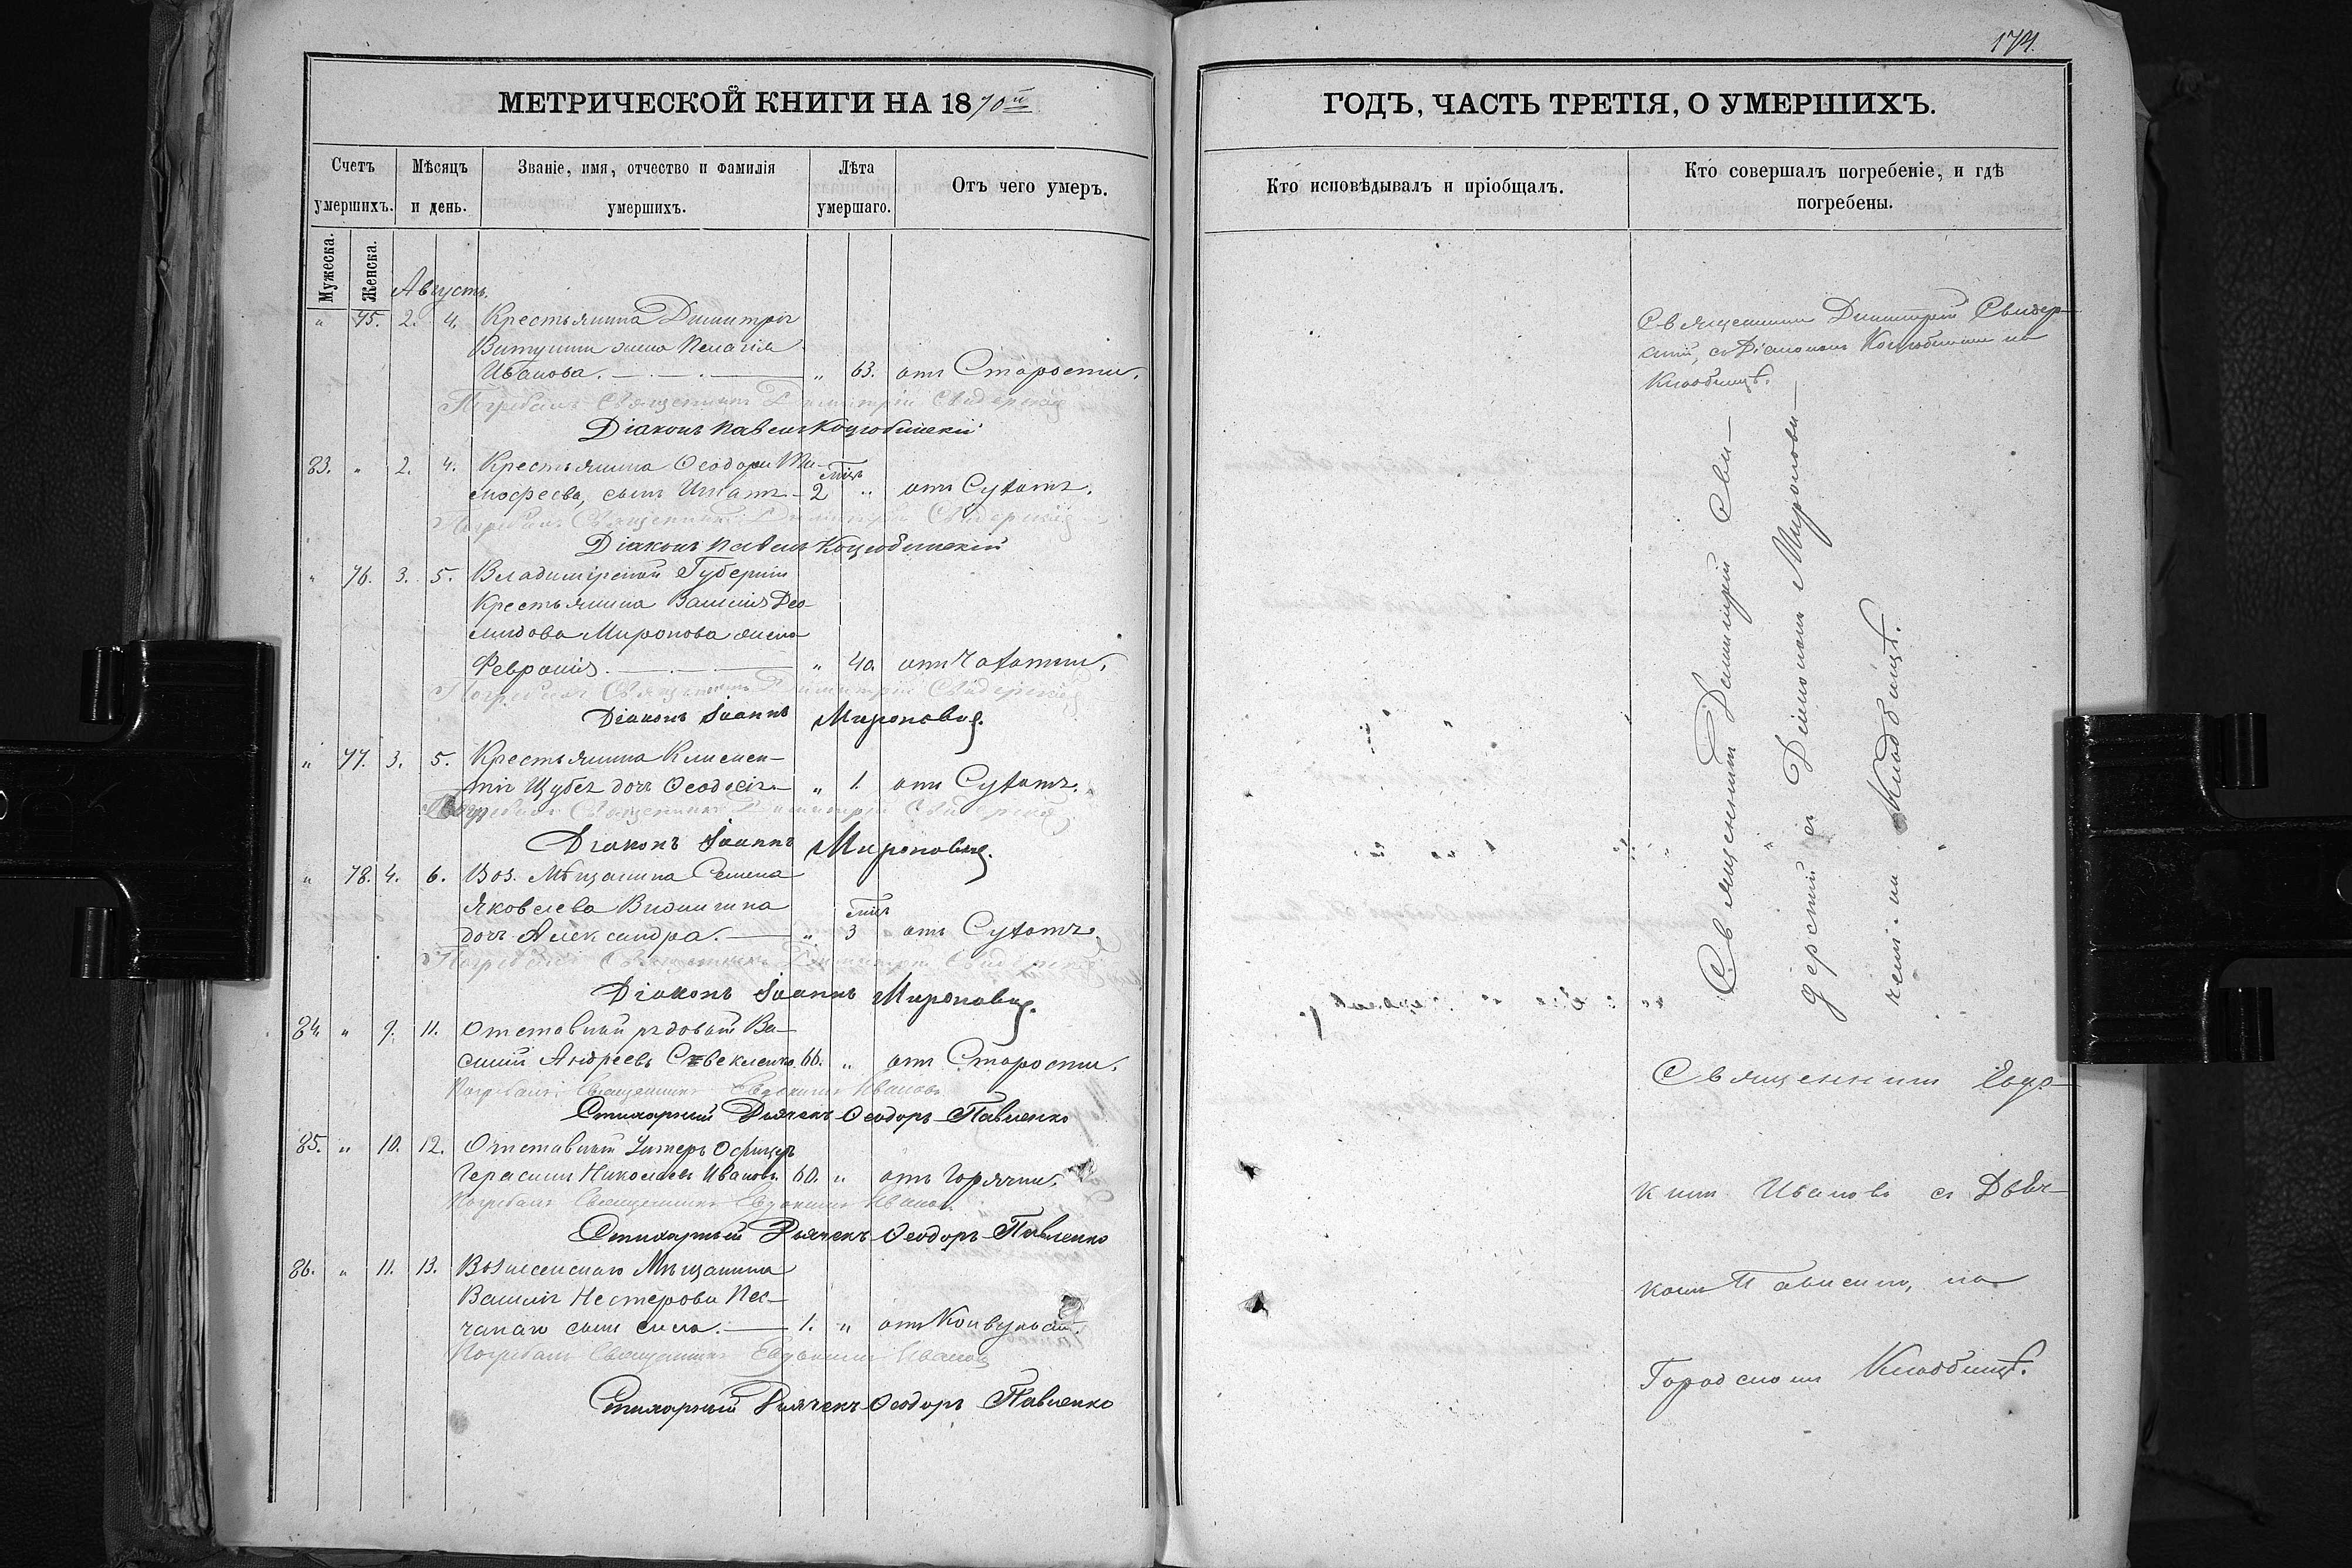 174.
МЕТРИЧЕСКОЙ КНИГИ НА 1870й
Счетъ умершихъ.
Мужеска.
Женска.
Мѣсяцъ и день.
Званіе, имя, отчество и фамилія умершихъ.
Лѣта умершаго.
Отъ чего умеръ.
Августъ.
" 75. 2. 4. Крестьянина Димитрія
жена Пелагія
Иванова. " 63. отъ Старости.
Погребалъ Священникъ Димитрій Свидерскій
Діаконъ Павелъ Коцюбинскій
83. " 2. 4. Крестьянина Ѳеодора Ти-
моѳеева, сынъ Игнатъ 2 мц. " отъ Сухотъ.
Погребалъ Священникъ Димитрій Свидерскій
Діаконъ Павелъ Коцюбинскій
" 76. 3. 5. Владимірской Губерніи
Крестьянина Василія Део-
мидова Миронова жена
Февронія " 40. отъ Чахотки.
Погребалъ Священникъ Димитрій Свидерскій
Діаконъ Іоаннъ Мироновъ
" 77. 3. 5. Крестьянина Климен-
тія дочь Ѳеодосія " 1. отъ Сухотъ.
Погребалъ Священникъ Димитрій Свидерскій
Діаконъ Іоаннъ Мироновъ
" 78. 4. 6. Воз. Мѣщанина Семена
Яковлева
дочь Александра. " 3 мц. отъ Сухотъ.
Погребалъ Священникъ Димитрій Свидерскій
Діаконъ Іоаннъ Мироновъ
84. " 9. 11. Отставный рядовой Ва-
силій Андреевъ 66. " отъ Старости.
Погребалъ Священникъ Евдокимъ Ивановъ
Стихарный Дьячекъ Ѳеодоръ Павленко
85. " 10. 12. Отставный Унтеръ Офицеръ
Герасимъ Николаевъ Ивановъ. 60. " отъ Горячки.
Погребалъ Священникъ Евдокимъ Ивановъ
Стихарный Дьячекъ Ѳеодоръ Павленко
86. " 11. 13. Вознесенскаго Мѣщанина
Василія Нестерова Пес-
чанаго сынъ 1. " отъ Конвульсій.
Погребалъ Священникъ Евдокимъ Ивановъ
Стихарный Дьячекъ Ѳеодоръ Павленко
ГОДЪ, ЧАСТЬ ТРЕТІЯ, О УМЕРШИХЪ.
Кто исповѣдывалъ и пріобщалъ.
Кто совершалъ погребеніе, и гдѣ погребены.
Священникъ Димитрій Свидер-
скій, съ Діакономъ Коцюбинскимъ на
Кладбищѣ.
Священникъ Димитрій Сви-
дерскій съ Діакономъ Мироновы-
Кладбищѣ.
Священникъ Евдо-
кимъ Ивановъ съ Дьяч-
комъ Павленко, на
Городскомъ Кладбищѣ.